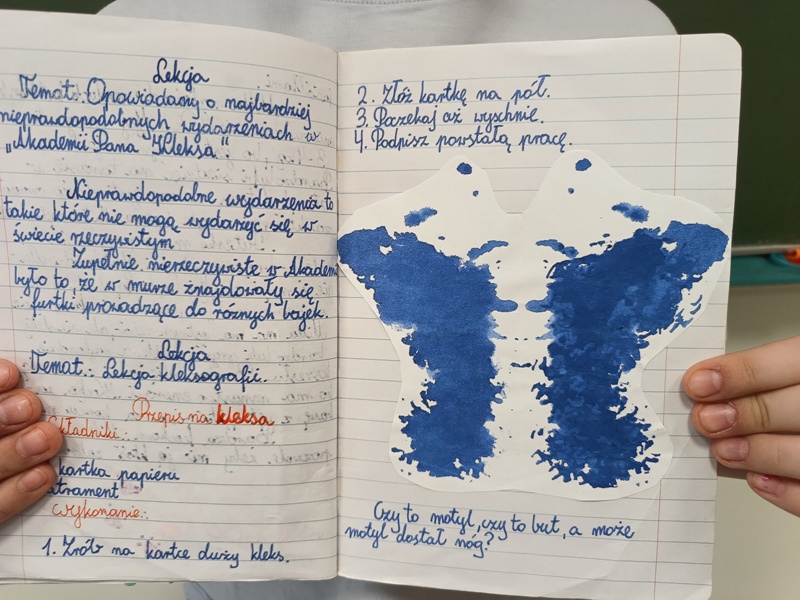 Lekcja
Temat: Opowiadamy o najbardziej
nieprawdopodobnych wydarzeniach w
„Akademii Pana Kleksa”.
Nieprawdopodobne wydarzenia to
takie które nie mogą wydarzyć się w
świecie rzeczywistym
Zupełnie nierzeczywiste w Akademi
było to, że w murze znajdowały się
furtki prowadzące do różnych bajek.
Lekcja
Temat: Lekcja kleksografii.
Przepis na kleksa
Składniki:
kartka papieru
atrament
Wykonanie:
1. Zrób na kartce duży kleks.
2. Złóż kartkę na pół.
3. Poczekaj aż wyschnie.
4. Podpisz powstałą pracę.
Czy to motyl, czy to but, a może
motyl dostał nóg?